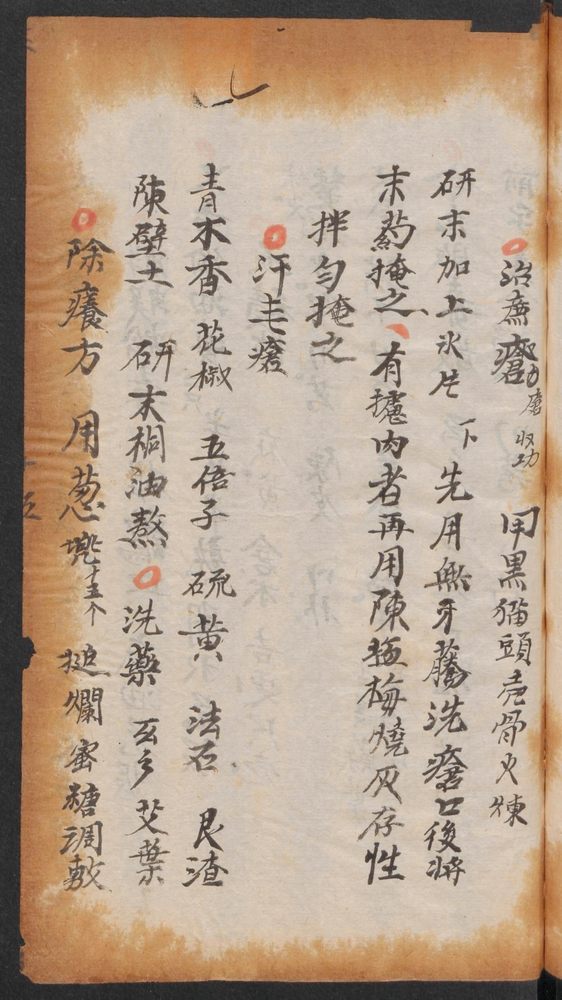 治䗪瘡 收功 用黑猫頭壳骨火煉
研末加上氷片 下先用無牙藤洗瘡口後將
末药掩之 有㧯肉者再用陳極梅燒灰存性
拌匀掩之
汗毛瘡
青木香 花椒 五倍子 硫黄 法石 艮渣
陳壁土 研末桐油熬 洗藥 艾葉
除癢方 用葱蔸十五个 搥爛蜜糖調敷